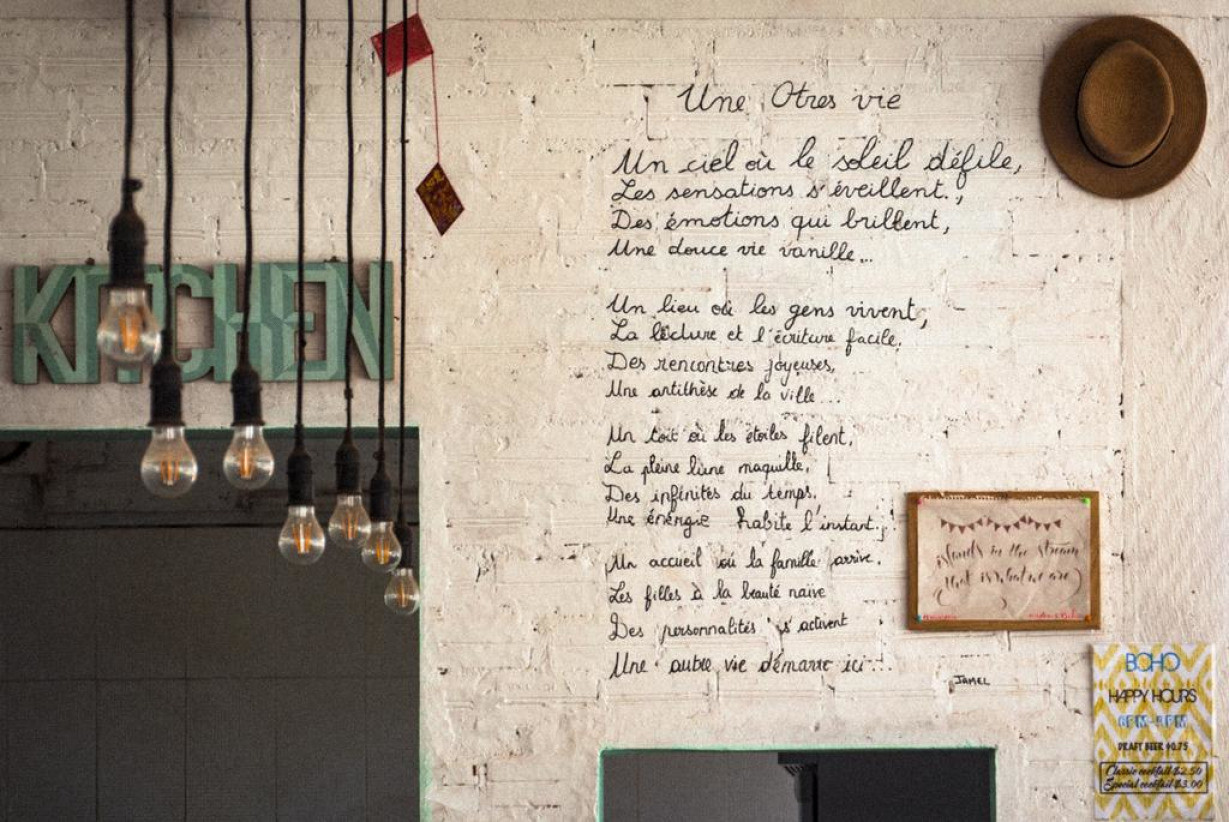 KITCHEN
Une Otres vie
Un ciel où le soleil défile,
Les sensations s'éveillent.,
Des émotions qui brillent,
Une douce vie vanille...
Un lieu où les gens vivent,
La lecture et l'écriture facile.
Des rencontres joyeuses,
Une antithèse de la ville...
Un toit où les étoiles filent,
La pleine lune maquille,
Des infinités du temps,
Une énergie habite l'instant.
Un accueil où la famille arrive,
Les filles à la beauté naïve
Des personnalités s'activent
Une autre vie démarre ici...
JAMEL
islands in the stream
that is what we are
BOHO
HAPPY HOURS
DRAFT BEER $0.75
Classic cocktail $2.50
Special cocktail $3.00